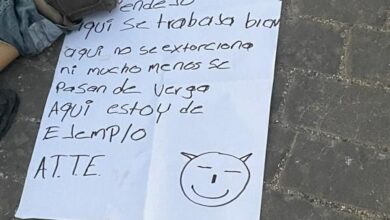 Pendejo
Aquí se trabaja bian
aquí no se extorciona
ni mucho menos se
Pasan de verga
Aquí estoy de
Ejemplo
AT.TE.